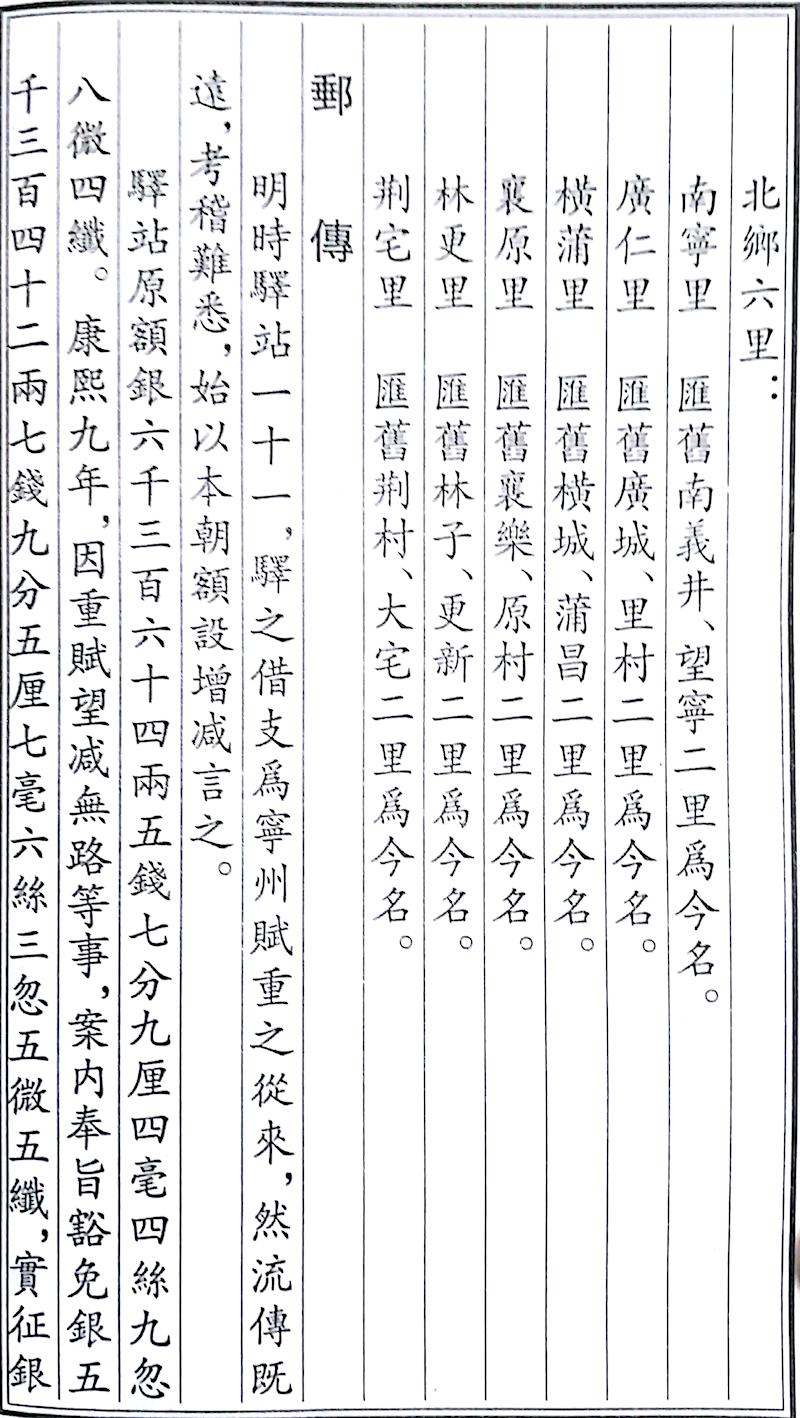 北鄉六里：
南寧里　匯舊南義井、望寧二里爲今名。
廣仁里　匯舊廣城、里村二里爲今名。
橫蒲里　匯舊橫城、蒲昌二里爲今名。
襄原里　匯舊襄樂、原村二里爲今名。
林更里　匯舊林子、更新二里爲今名。
荆宅里　匯舊荆村、大宅二里爲今名。
郵　傳
明時驛站一十一，驛之借支爲寧州賦重之從來，然流傳既
遠，考稽難悉，始以本朝額設增減言之。
驛站原額銀六千三百六十四兩五錢七分九厘四毫四絲九忽
八微四纖。康熙九年，因重賦望減無路等事，案内奉旨豁免銀五
千三百四十二兩七錢九分五厘七毫六絲三忽五微五纖，實征銀